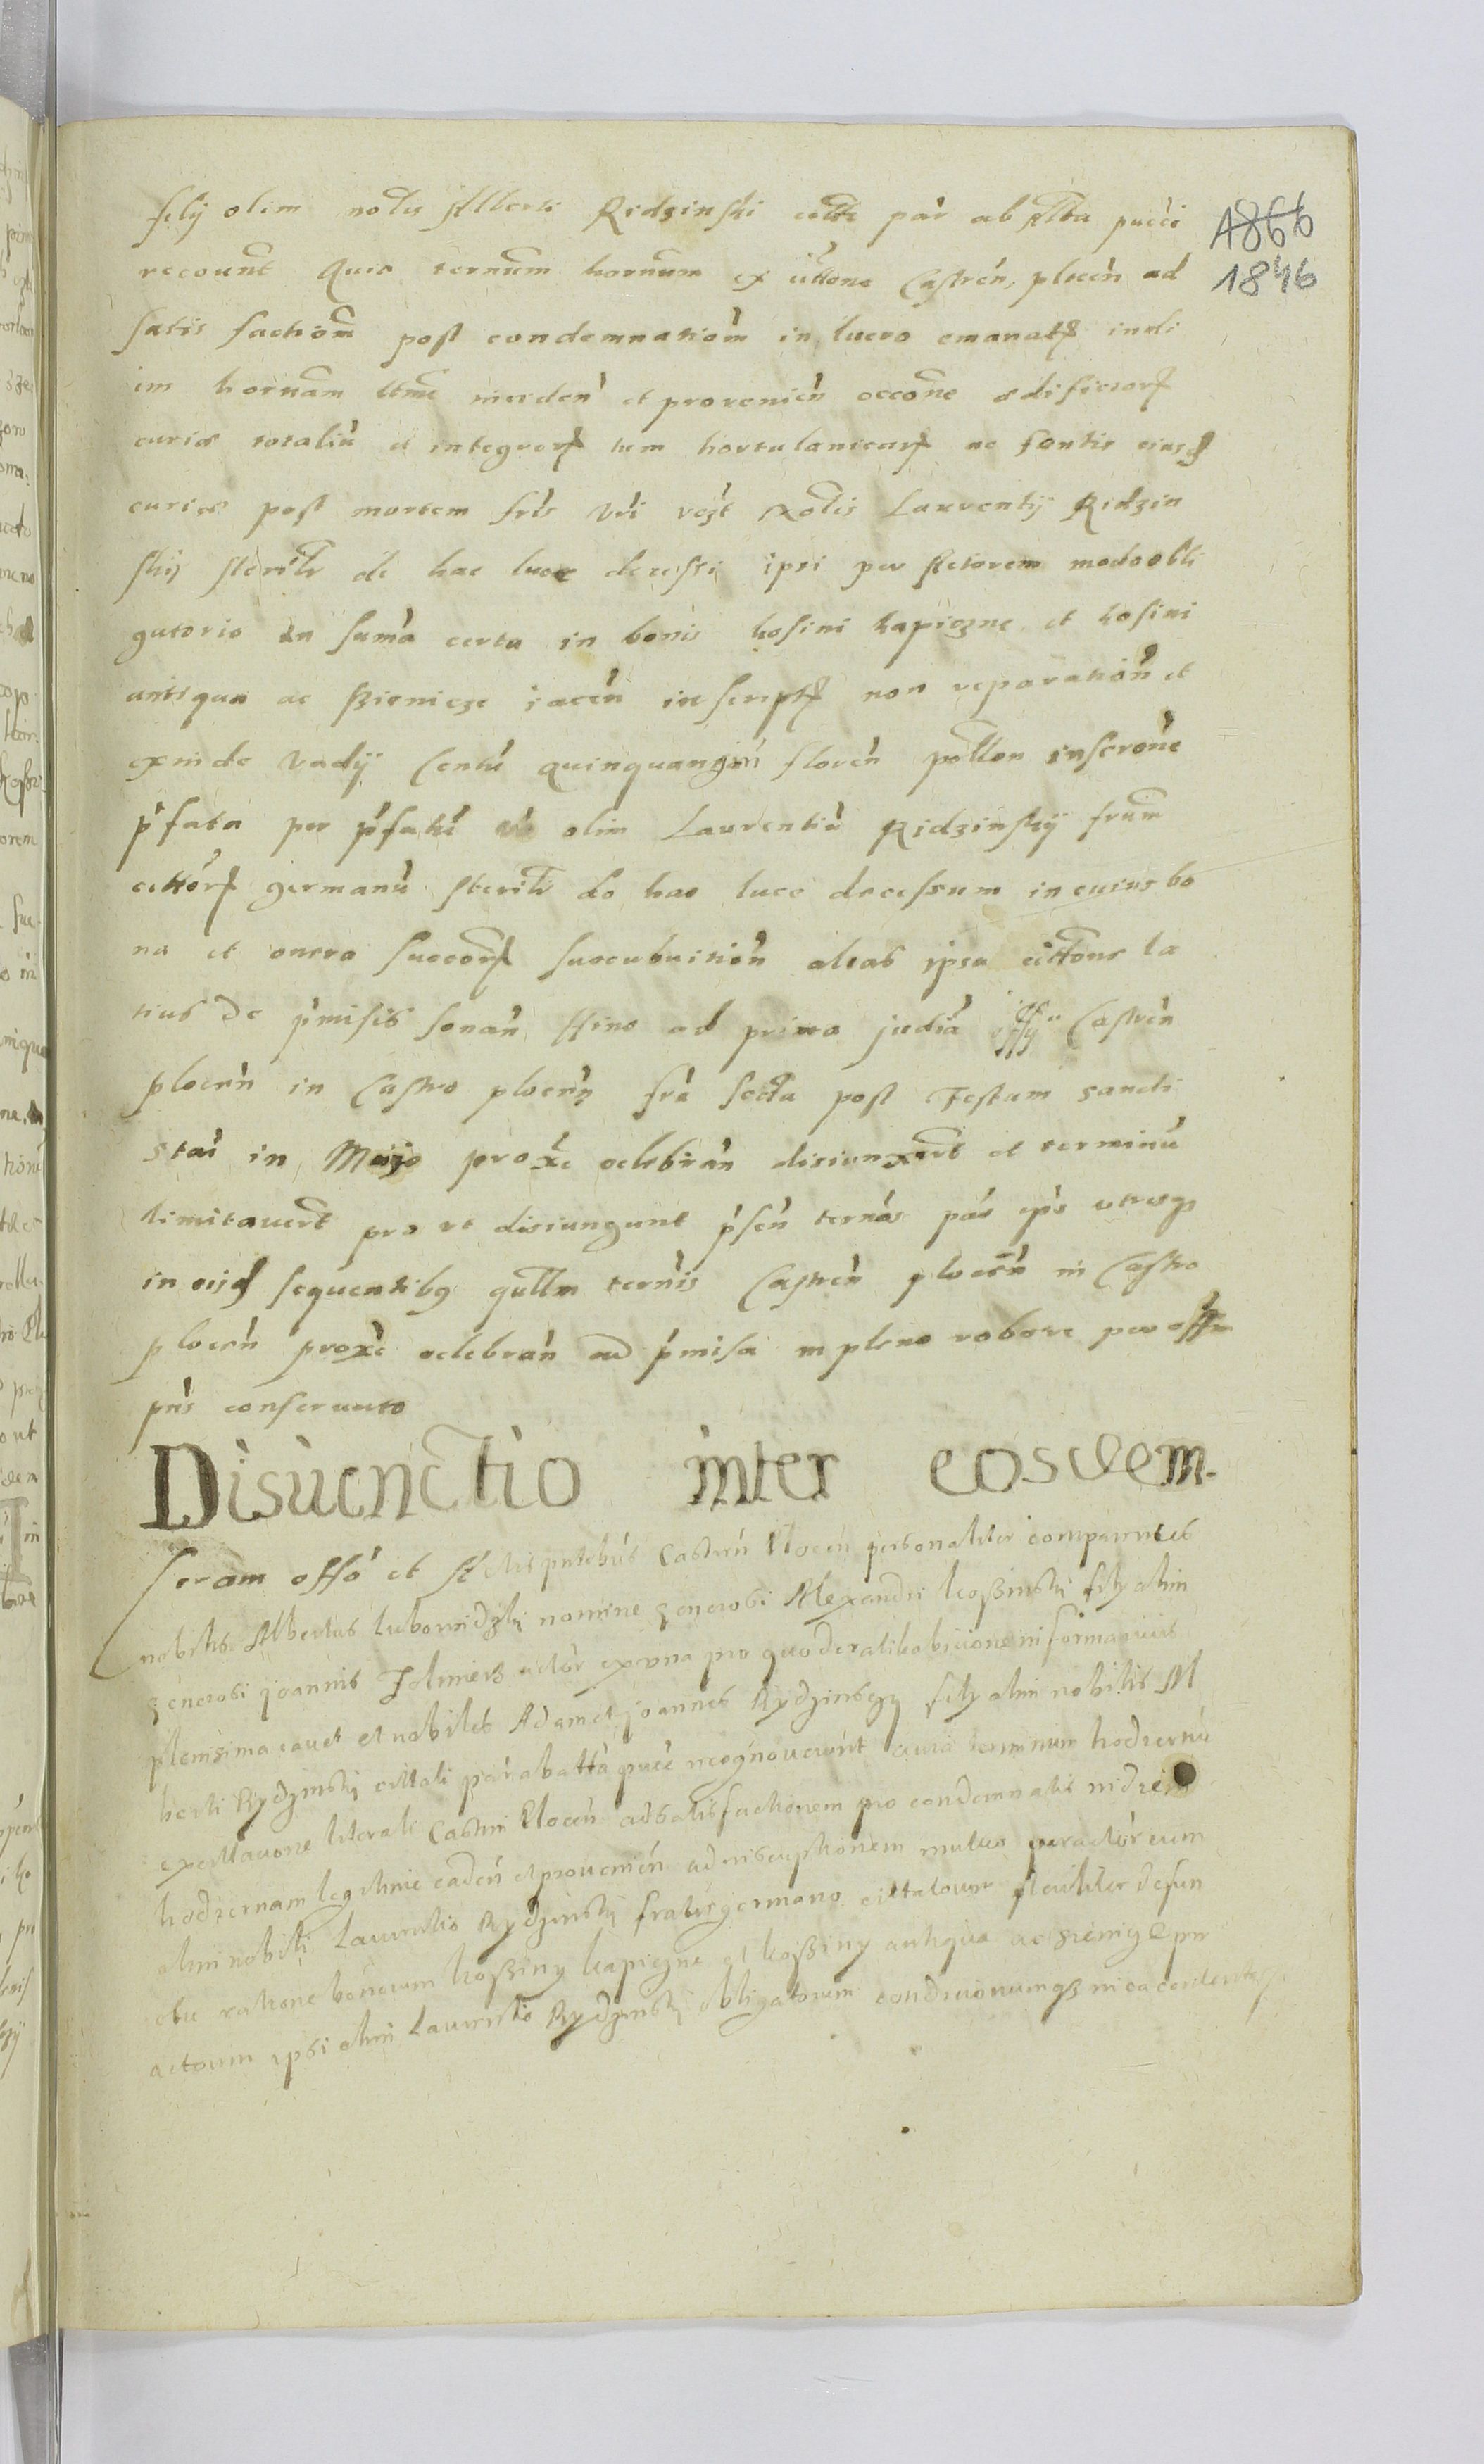 filij olim nolis Alberti Ridzinski cittti par ab altra pucti
1866
1846
recount Quia ternum hornum ex cittone Castren, plocen ad
satis factiom post condemnatiom in lucro emanat indi
im hornam ltme inciden et provenien occone edificior
curiæ totaliu et integror tem hortulanicar ac fontis eiusd
curiæ post mortem fris Vri rozt Nolis Laurentij Ridzin
skij sterilr de hac luce decessi, ipsi per Actorem modo obli
gatorio in suma certa in bonis kosini kapiczne et kosini
antiqua ac Szienicze iacen inscript non reparation et
exinde Vadij Centu quinquangin floren pollon inscrone
pfata per pfatu olim Laurentiu Ridzinskij frum
cittor germanu sterilr do hac luce decessum in cuius bo
na et onera succor succubuition alias ipsa cittone la
tius de pmisis sonan Hinc ad prima judia offy Castren
plocen in Castro plocen fra secta post Festum sancti
stai in Majo proxe celebran disiunxert et terminu
limitavert pro ut disiungunt psen ternas par ips utrosq
in eisd sequentibq qullm ternis Castren plocen in Castro
plocen proxe celebran ad pmisa in pleno robore per offm
pns conservato
Disiucnctio inter eosdem.
Coram offo et Actis pntebus Castren Plocen personaliter comparentes
nobilis Albertus Lubowidzki nomine generosi Alexandri kossinski filij olim
generosi joannis Zolnierz actor ex una pro quo de ratihabitione in forma juris
plenisima cavet et nobiles Adam et joannes Rydzinscy filij olim nobilis Al
berti Rydzinski cittati par ab altra puce recognoverunt quia terminum hodiernu
ex cittatione literali Castren Plocen ad satisfactionem pro condemnatis in diem
hodiernam legitime caden et provenien ad reiscuptionem mulus per actor cum
olim nobili Laurentio Rydzinski fratre germano cittatorum steriliter defun
cto ratione bonorum kossiny kapiczne et kossiny antiqua ac szienicze per
actorum ipsi olim Laurentio Rydzinski obligatorum conditionumqz in ea contentaz